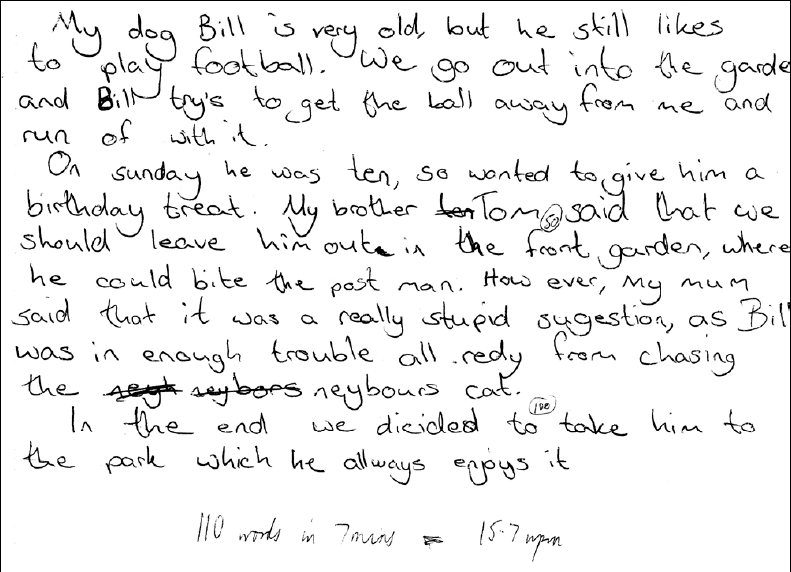 My dog Bill is very old, but he still likes
to play football. We go out into the garde
and Bill try's to get the ball away from me and
run of with it.
On sunday he was ten, so wanted to give him a
birthday treat. My brother ten Tom 50 said that we
should leave him out in the front garden, where
he could bite the post man. How ever, My mum
said that it was a really stupid sugestion, as Bill
was in enough trouble all redy from chasing
the neyh neybors neybours cat.
100
In the end we dicided to take him to
the park which he allways enjoys it
110 words in 7 mins = 15.7 wpm